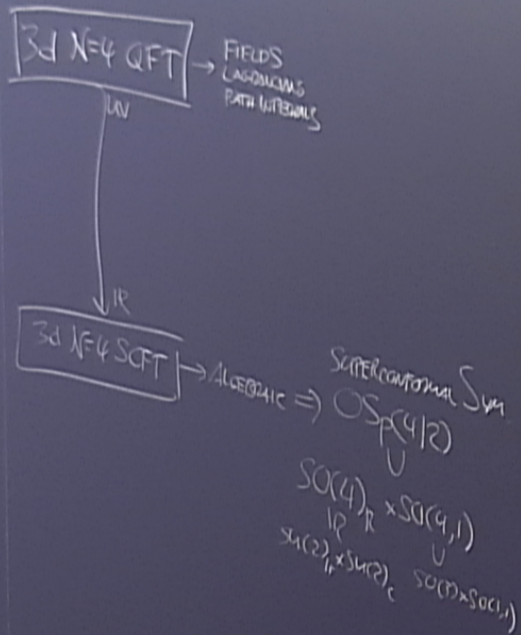 3d N=4 QFT → FIELDS
LAGRANGIANS
PATH INTEGRALS
UV
IR
3d N=4 SCFT → ALGEBRAIC ⇒
SUPERCONFORMAL Sym
OSp(4|2)
∪
SO(4)_R × SO(4,1)
SU(2)_H × SU(2)_C
∪
SO(3) × SO(1,1)